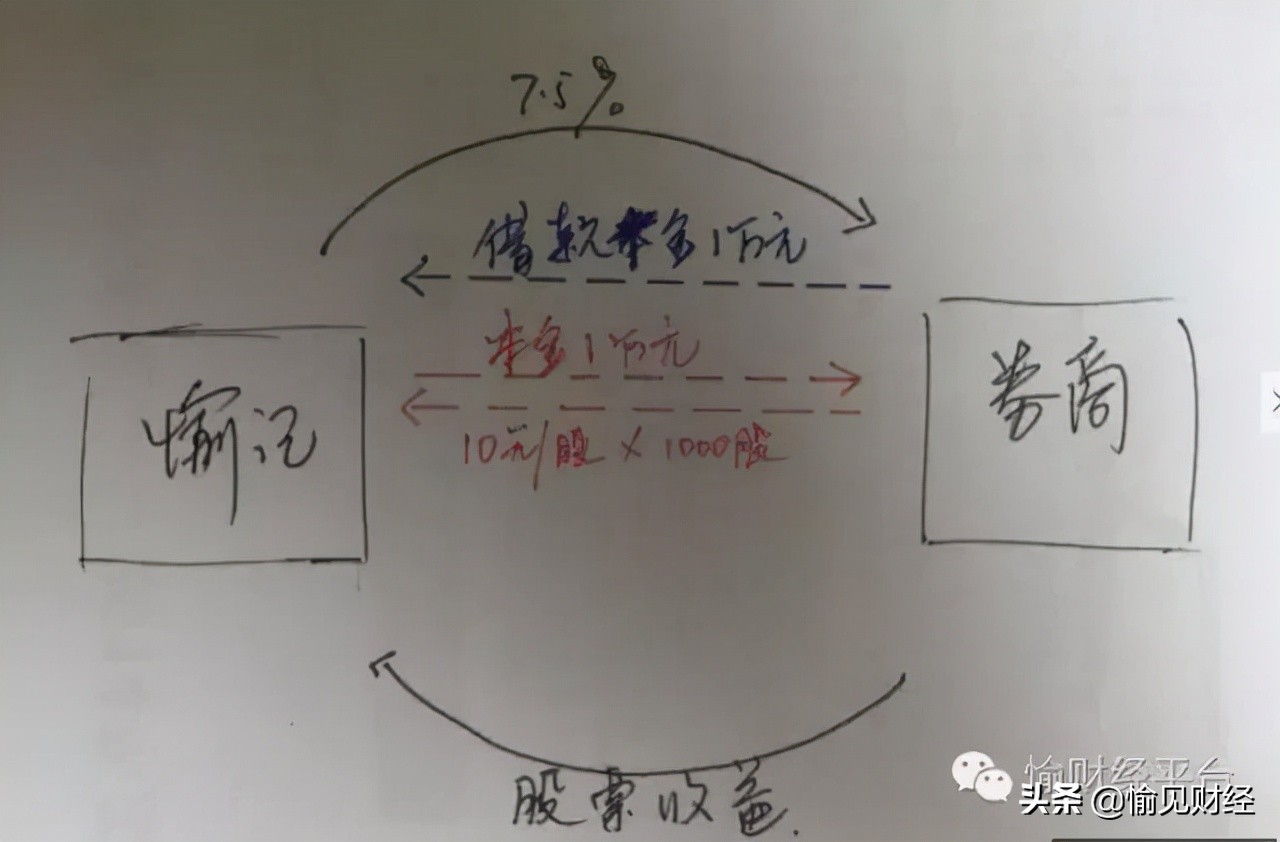 7.5%
借款本金1万元
本金1万元
愉记
券商
10元/股 × 1000股
股票收益.
愉财经平台
头条 @愉见财经